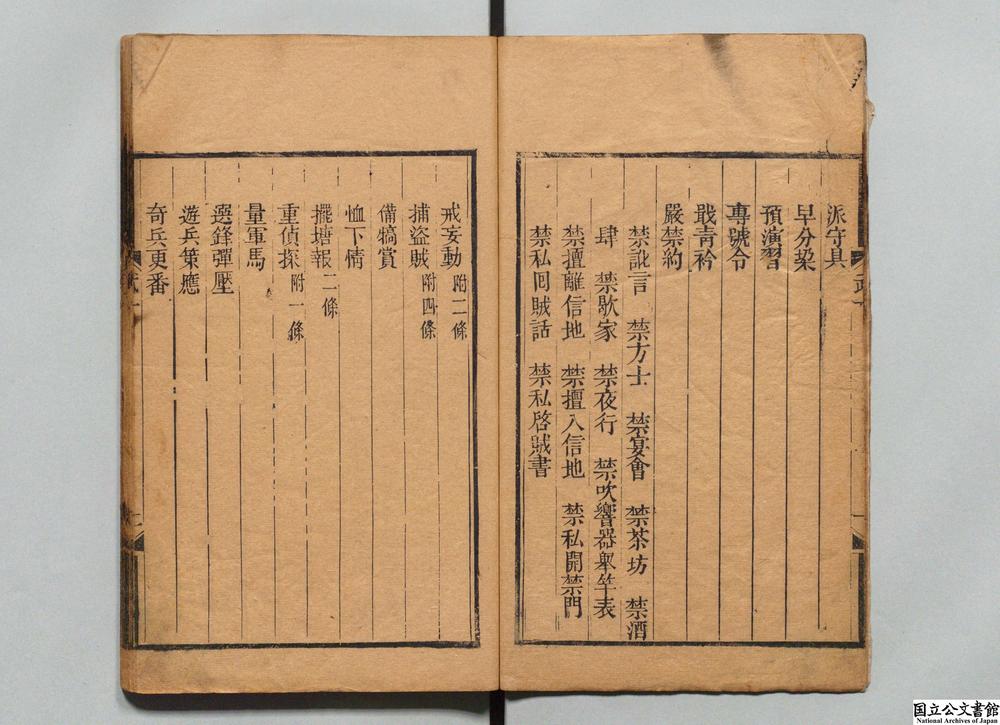 派守具
早分梁
預演習
專號令
戢青衿
嚴禁約
禁訛言 禁方士 禁宴會 禁茶坊 禁酒
肆 禁歇家 禁夜行 禁吹響器舉竿表
禁擅離信地 禁擅入信地 禁私開禁門
禁私囘賊話 禁私啓賊書
戒妄動 附二條
捕盜賊 附四條
備犒賞
恤下情
擺塘報 二條
重偵探 附一條
量軍馬
選鋒彈壓
遊兵策應
奇兵更番
国立公文書館
National Archives of Japan